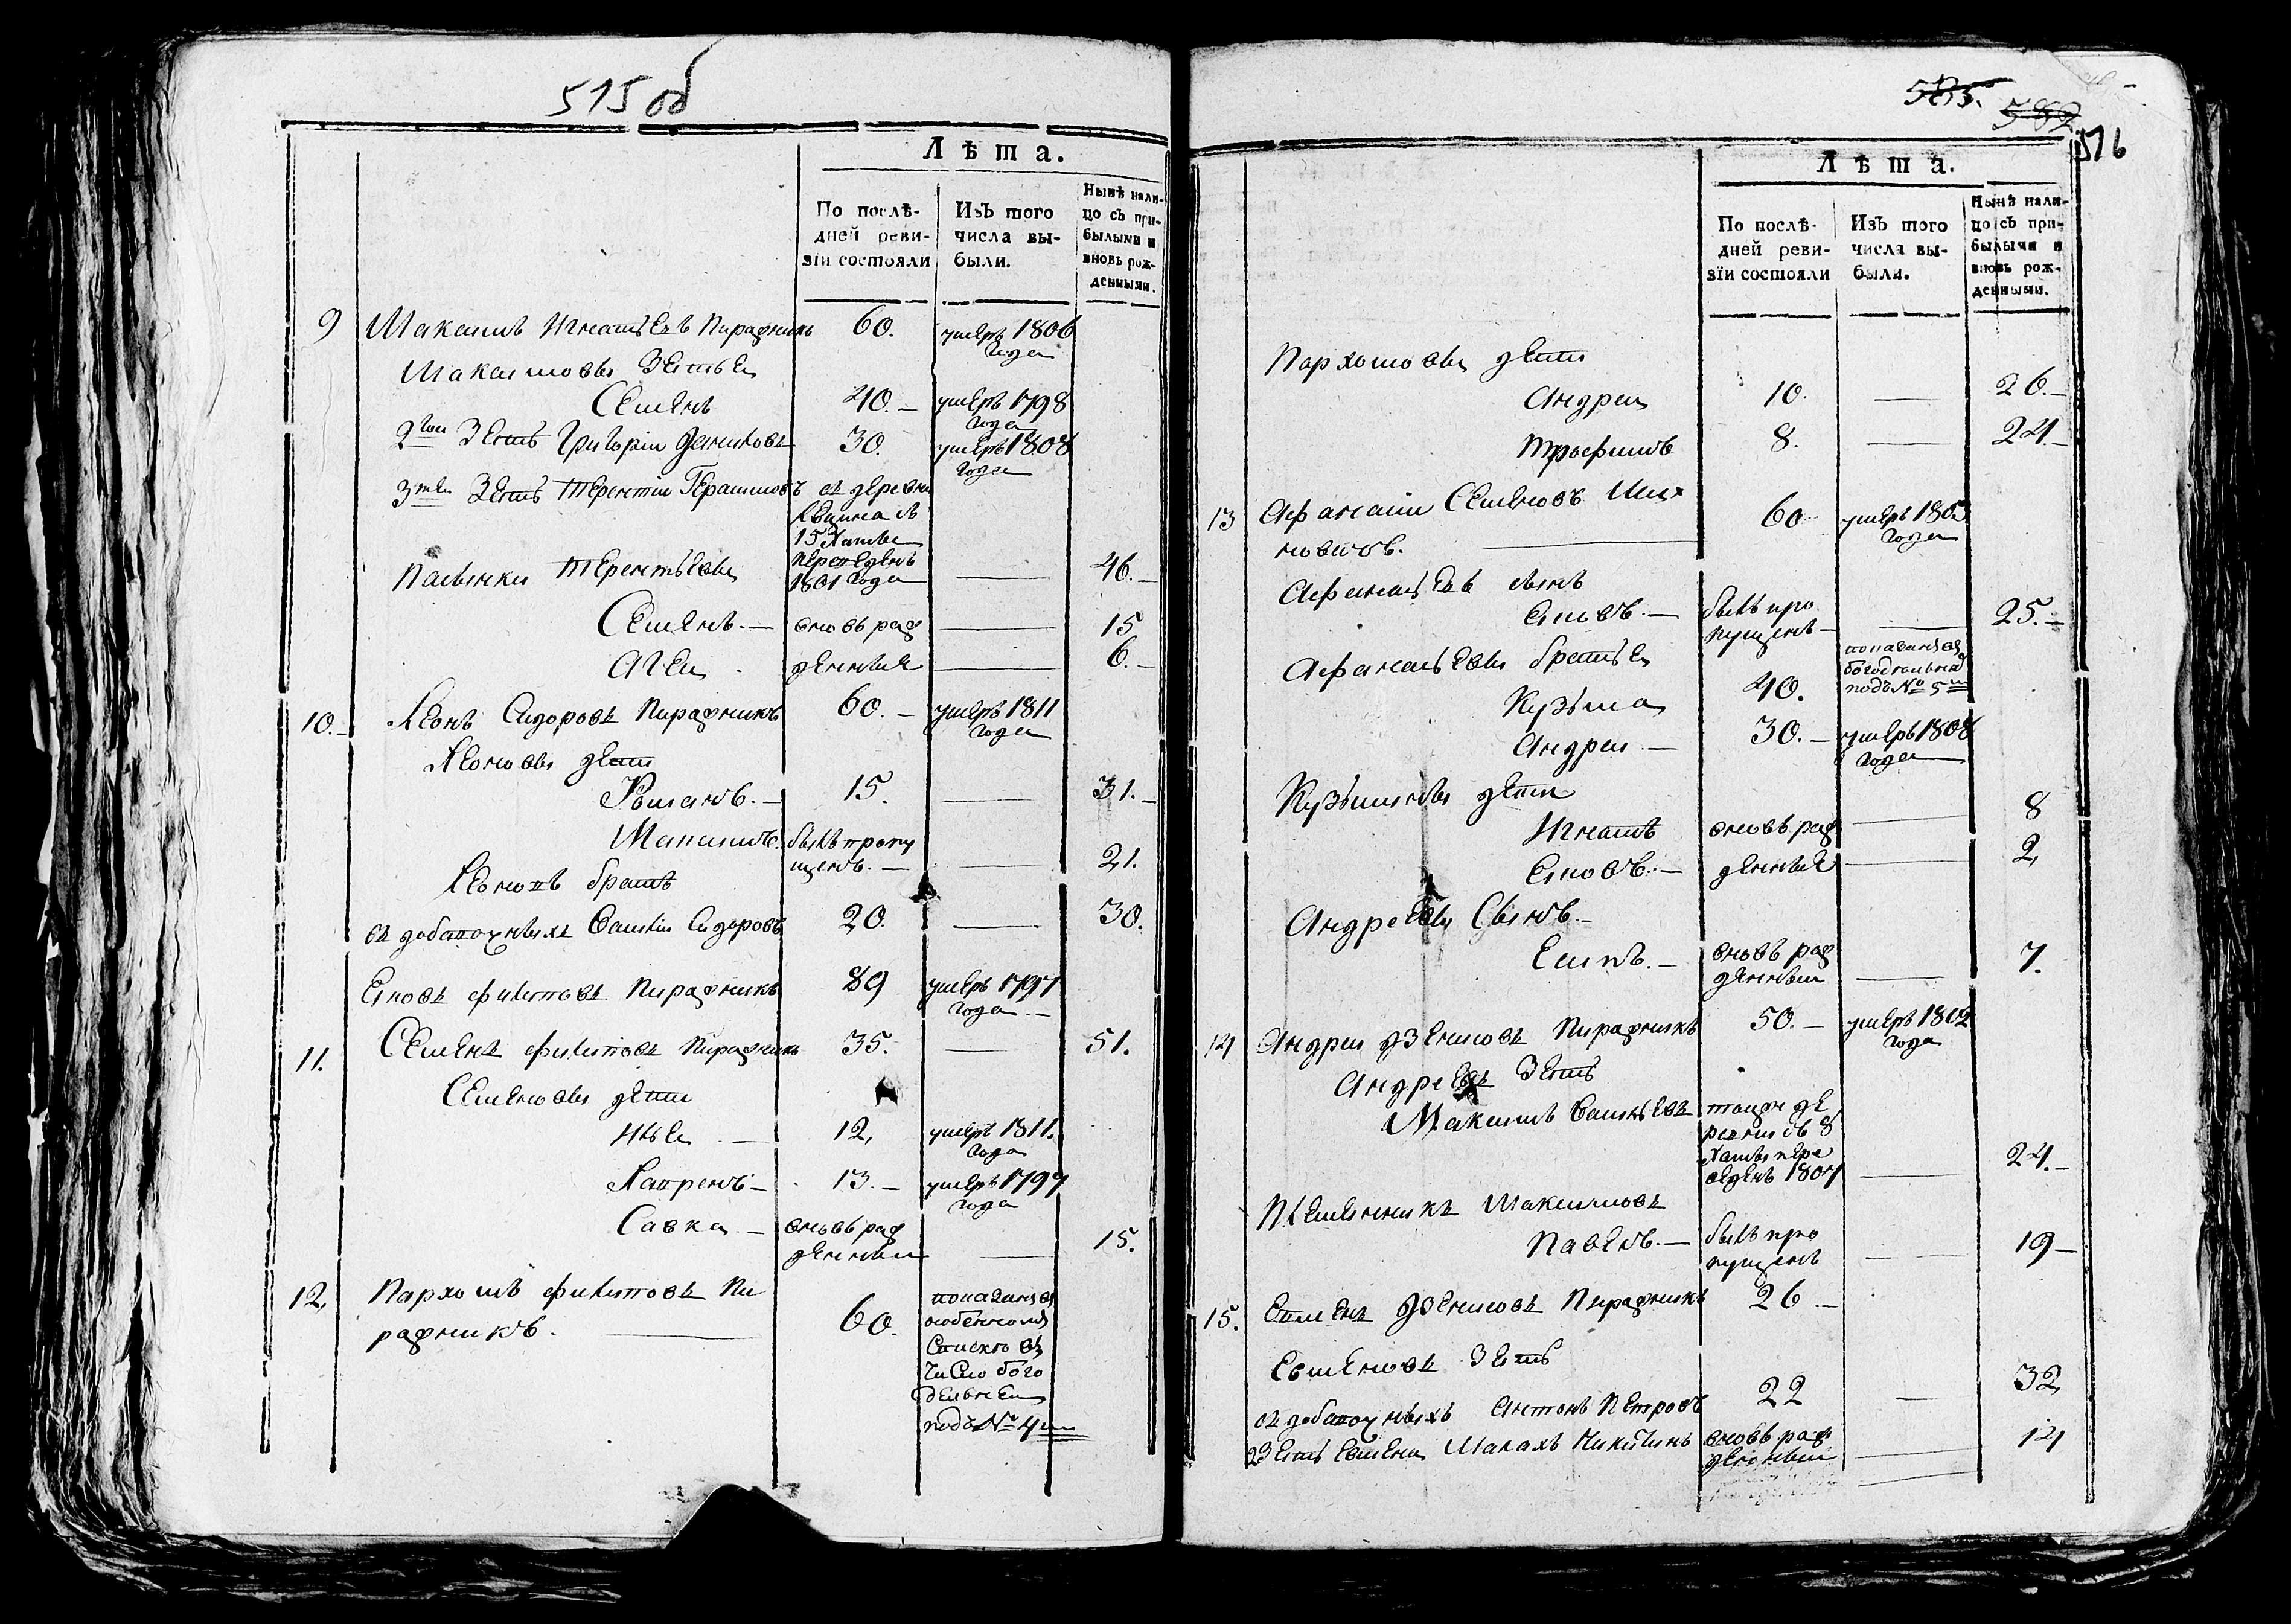 515об
Лѣта.
По послѣ-
дней реви-
зіи состояли
Изъ того
числа вы-
были.
Нынѣ нали-
цо съ при-
былыми и
вновь рож-
денными.
9 Макаимъ Игнатьевъ Пиражникъ 60. умеръ 1806
года
Макаимовы Зетьеи
Семенъ 40.— умеръ 1798
года
2гои Зеть Григореи Дениковъ 30. умеръ 1808
года
3теи Зеть Терентіи Герасимовъ въ деревни
15 Хатые
переведенъ
1801 года — 46.—
Пасынки Терентьевы
Семенъ.— вновь раж — 15
Агеи. денныи — 6.—
10.— Леонъ Сидоровъ Пиражникъ 60.— умеръ 1811
года
Леоновы дети
Романъ.— 15. — 31.—
Мапимъ. былъ пропу
щенъ.— — 21.
Леоновъ братъ
въ добавочныхъ Василіи Сидоровъ 20. — 30.
Еновъ филиповъ Пиражникъ 89 умеръ 1797
года.—
11. Семенъ филиповъ Пиражникъ 35. — 51.
Семеновы дети
Илеи.— 12, умеръ 1811.
года
Лавренъ— 13.— умеръ 1797
года
Савка.— вновь раж
денныи — 15.
12, Пархомъ филиповъ Пи
ражникъ.— 60. попаданъ въ
особенномъ
Списко въ
число бого
дельнеи
подъ № 4м
585.
582
516
Лѣта.
По послѣ-
дней реви-
зіи состояли
Изъ того
числа вы-
были.
Нынѣ нали-
цо съ при-
былыми и
вновь рож-
денными.
Пархомовы дети
Андреи 10. — 26.—
Трофимъ 8. — 24.—
13 Афанасіи Семеновъ Ших
новичъ.— 60 умеръ 1803
года
Афанасьевъ сынъ
Еновъ.— былъ про
пущенъ— — 25.—
Афанасьевы братьеи
Кузьма 40. попаданъ въ
богодельнеи
подъ № 5м
Андреи.— 30.— умеръ 1808
года
Кузьмины дети
Игнатъ вновь раж — 8
Еновъ.— денныи — 2,
Андреевы Сынъ.—
Есипъ.— вновь раж
денныи — 7.
14 Андреи Дзенисовъ Пиражникъ 50.— умеръ 1812
года
Андреевъ Зеть
Макаимъ Васильевъ тоиже де
ревни съ 8
Хаты пере
веденъ 1807 — 24.—
Племянникъ Макаимовъ
Павелъ.— былъ про
пущенъ — 19—
15. Евменъ Дзенисовъ Пиражникъ 26.—
Евменовъ Зеть
въ добавочныхъ Антонъ Петровъ 22 — 32,
2Зеть Евмена Малахъ Никитинъ вновь раж
денныи — 14